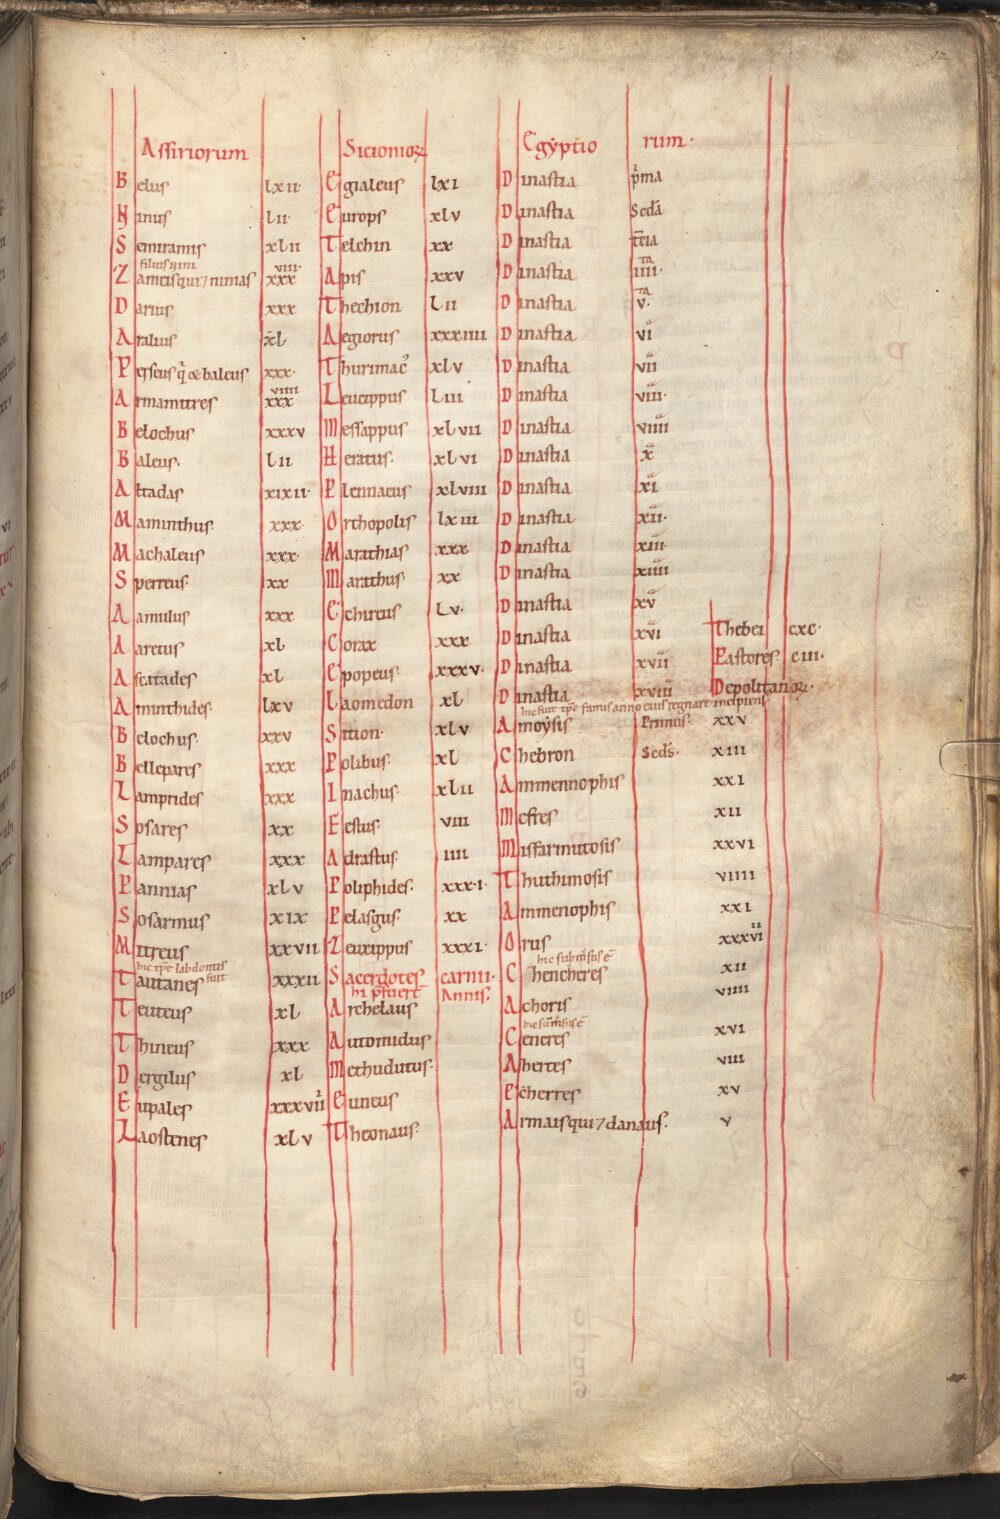 Assiriorum Sicionioꝝ Egẏptio rum·
Belus lxii· Egialeus lxi Dinastia p̍ma
Ninus lii· Europs xlv Dinastia Scd̄a
Semiramis xlii Telchin xx Dinastia tc̄ia
filius nini viii· ta
Zameis qui ⁊ ninias xxx Apis xxv Dinastia iiii·
ta
Darius xxx Thechion lii Dinastia v·
Aralius xl Aegiorus xxxiiii Dinastia vi
Perseus q̄ & baleus xxx· Thurimac᾽ xlv Dinastia vii
viiii
Armamitres xxx Leucippus liii Dinastia viii·
Belochus xxxv Messappus xlvii Dinastia viiii
Baleus· lii Heratus· xlvi Dinastia x
Altadas xixii· Plennaeus xlviii Dinastia xi
Maminthus xxx· Orthopolis lxiii Dinastia xii·
Machaleus xxx· Marathias xxx Dinastia xiii·
Sperreus xx Marathus xx Dinastia xiiii
Aamulus xxx Echireus lv· Dinastia xv
Aareius xl Corax xxx Dinastia xvi Thebei cxc·
Ascitades xl Epopeus xxxv· Dinastia xvii Pastores· ciii·
Aminthides· lxv Laomedon xl Dinastia xviii Depolitanoꝝ·
hic fuit tp̄e famis anno eius regnare incipiens
Belochus· xxv Sition· xlv Amoẏsis Primus· xxv
Bellepares xxx Polibus· xl Chebron Scds̄· xiii
Lamprides xxx Inachus· xlii Ammennophis xxi
Sosares xx Eestus· viii Mefres xii
Lampares xxx Adrastus· iiii Misfarmutosis xxvi
Pannias xlv Poliphides· xxx·i· Thuthimosis viiii
Sosarmus xix Pelasgus· xx Ammenophis xxi
Mitreus xxvii Zeuxippus xxxi· Orus xxxvi
hic tp̄e labdonius fuit
Tautanes xxxii Sacerdotes carnii· Chencheres xii
hi p̄fuert̄ Annis·
Teuteus xl Archelaus Achoris viiii
Thineus xxx Automidus Ceneres xvi
Dergilus xl Methudutus· Aherres viii
Eupales xxxvii Euneus Echerres xv
Laostenes xlv Theonaus· Armais qui ⁊ danaus· v